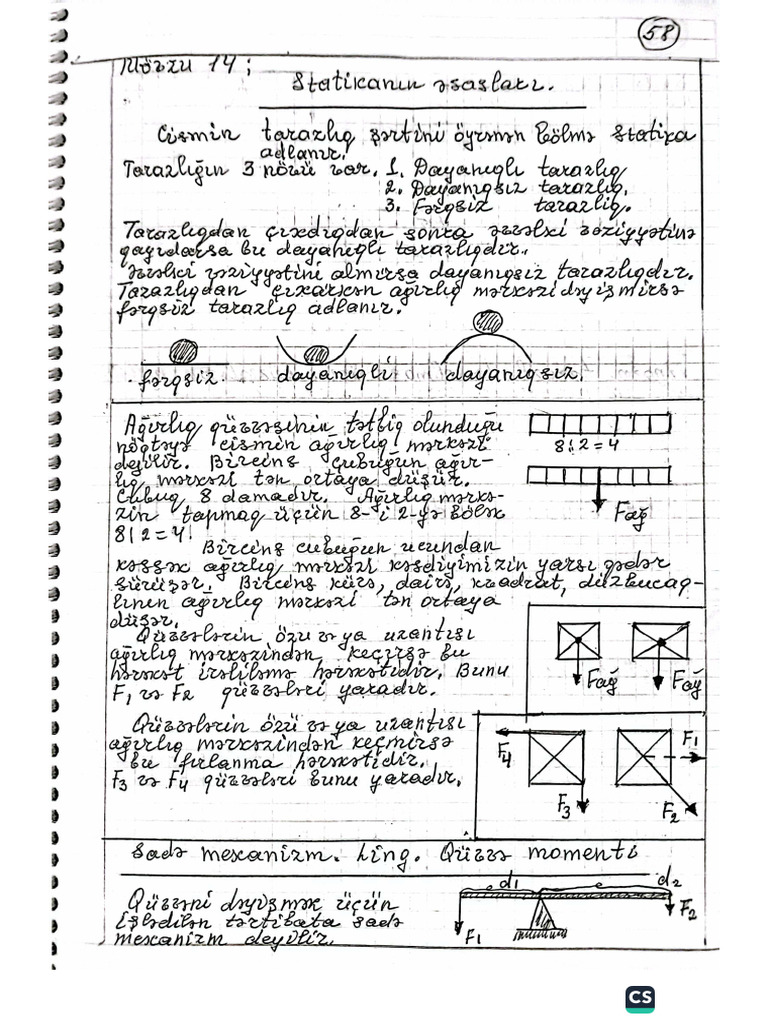 58
Mövzu 14:
Statikanın əsasları.
Cismin tarazlıq şərtini öyrənən bölmə statika
adlanır.
Tarazlığın 3 növü var. 1. Dayanıqlı tarazlıq
2. Dayanıqsız tarazlıq.
3. Fərqsiz tarazlıq.
Tarazlıqdan çıxdıqdan sonra əvvəlki vəziyyətinə
qayıdarsa bu dayanıqlı tarazlıqdır.
Əvvəlki vəziyyətini almırsa dayanıqsız tarazlıqdır.
Tarazlıqdan çıxarkən ağırlıq mərkəzi dəyişmirsə
fərqsiz tarazlıq adlanır.
fərqsiz dayanıqlı dayanıqsız.
Ağırlıq qüvvəsinin tətbiq olunduğu
nöqtəyə cismin ağırlıq mərkəzi
deyilir. Bircins çubuğun ağır-
lıq mərkəzi tən ortaya düşür.
Çubuq 8 damadır. Ağırlıq mərkə-
zin tapmaq üçün 8-i 2-yə bölək
8:2=4!
8:2=4
Fağ
Bircins çubuğun ucundan
kəssək ağırlıq mərkəzi kəsdiyimizin yarısı qədər
sürüşər. Bircins kürə, dairə, kvadrat, düzbucaq-
lının ağırlıq mərkəzi tən ortaya
düşər.
Qüvvələrin özü və ya uzantısı
ağırlıq mərkəzindən keçirsə bu
hərəkət irəliləmə hərəkətidir. Bunu
F1 və F2 qüvvələri yaradır.
Fağ Fağ
Qüvvələrin özü və ya uzantısı
ağırlıq mərkəzindən keçmirsə
bu fırlanma hərəkətidir.
F3 və F4 qüvvələri bunu yaradır.
F4 F1
F3 F2
Sadə mexanizm. Ling. Qüvvə momenti
Qüvvəni dəyişmək üçün
işlədilən tərtibata sadə
mexanizm deyilir.
d1 d2
F1 F2
CS